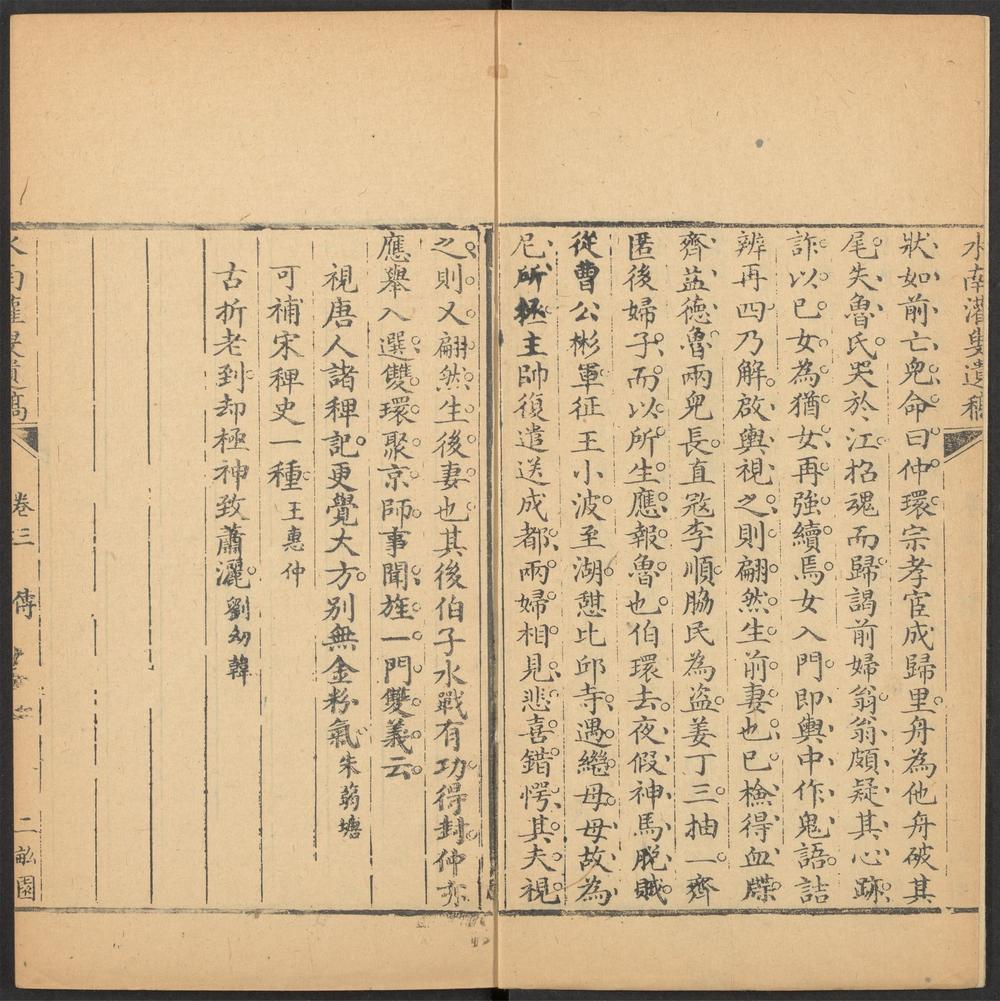 水南灌叟遺稿
狀如前亡兒命曰仲環宗孝宦成歸里舟為他舟破其
尾失魯氏哭於江招魂而歸謁前婦翁翁頗疑其心跡
詐以已女為猶女再強續焉女入門即輿中作鬼語詰
辨再四乃解啟輿視之則翩然生前妻也已檢得血牒
齊益德魯兩兒長直寇李順脇民為盜姜丁三抽一齊
匿後婦子而以所生應報魯也伯環去夜假神馬脫賊
從曹公彬軍征王小波至湖憇比邱寺遇繼母母故為
尼所拯主帥復遣送成都兩婦相見悲喜錯愕其夫視
之則又翩然生後妻也其後伯子水戰有功得封仲亦
應舉入選雙環聚京師事聞旌一門雙義云
視唐人諸稗記更覺大方別無金粉氣朱蒻塘
可補宋稗史一種王惠仲
古折老到却極神致蕭灑劉幼韓
水南灌叟遺稿 卷三 傳 二畝園